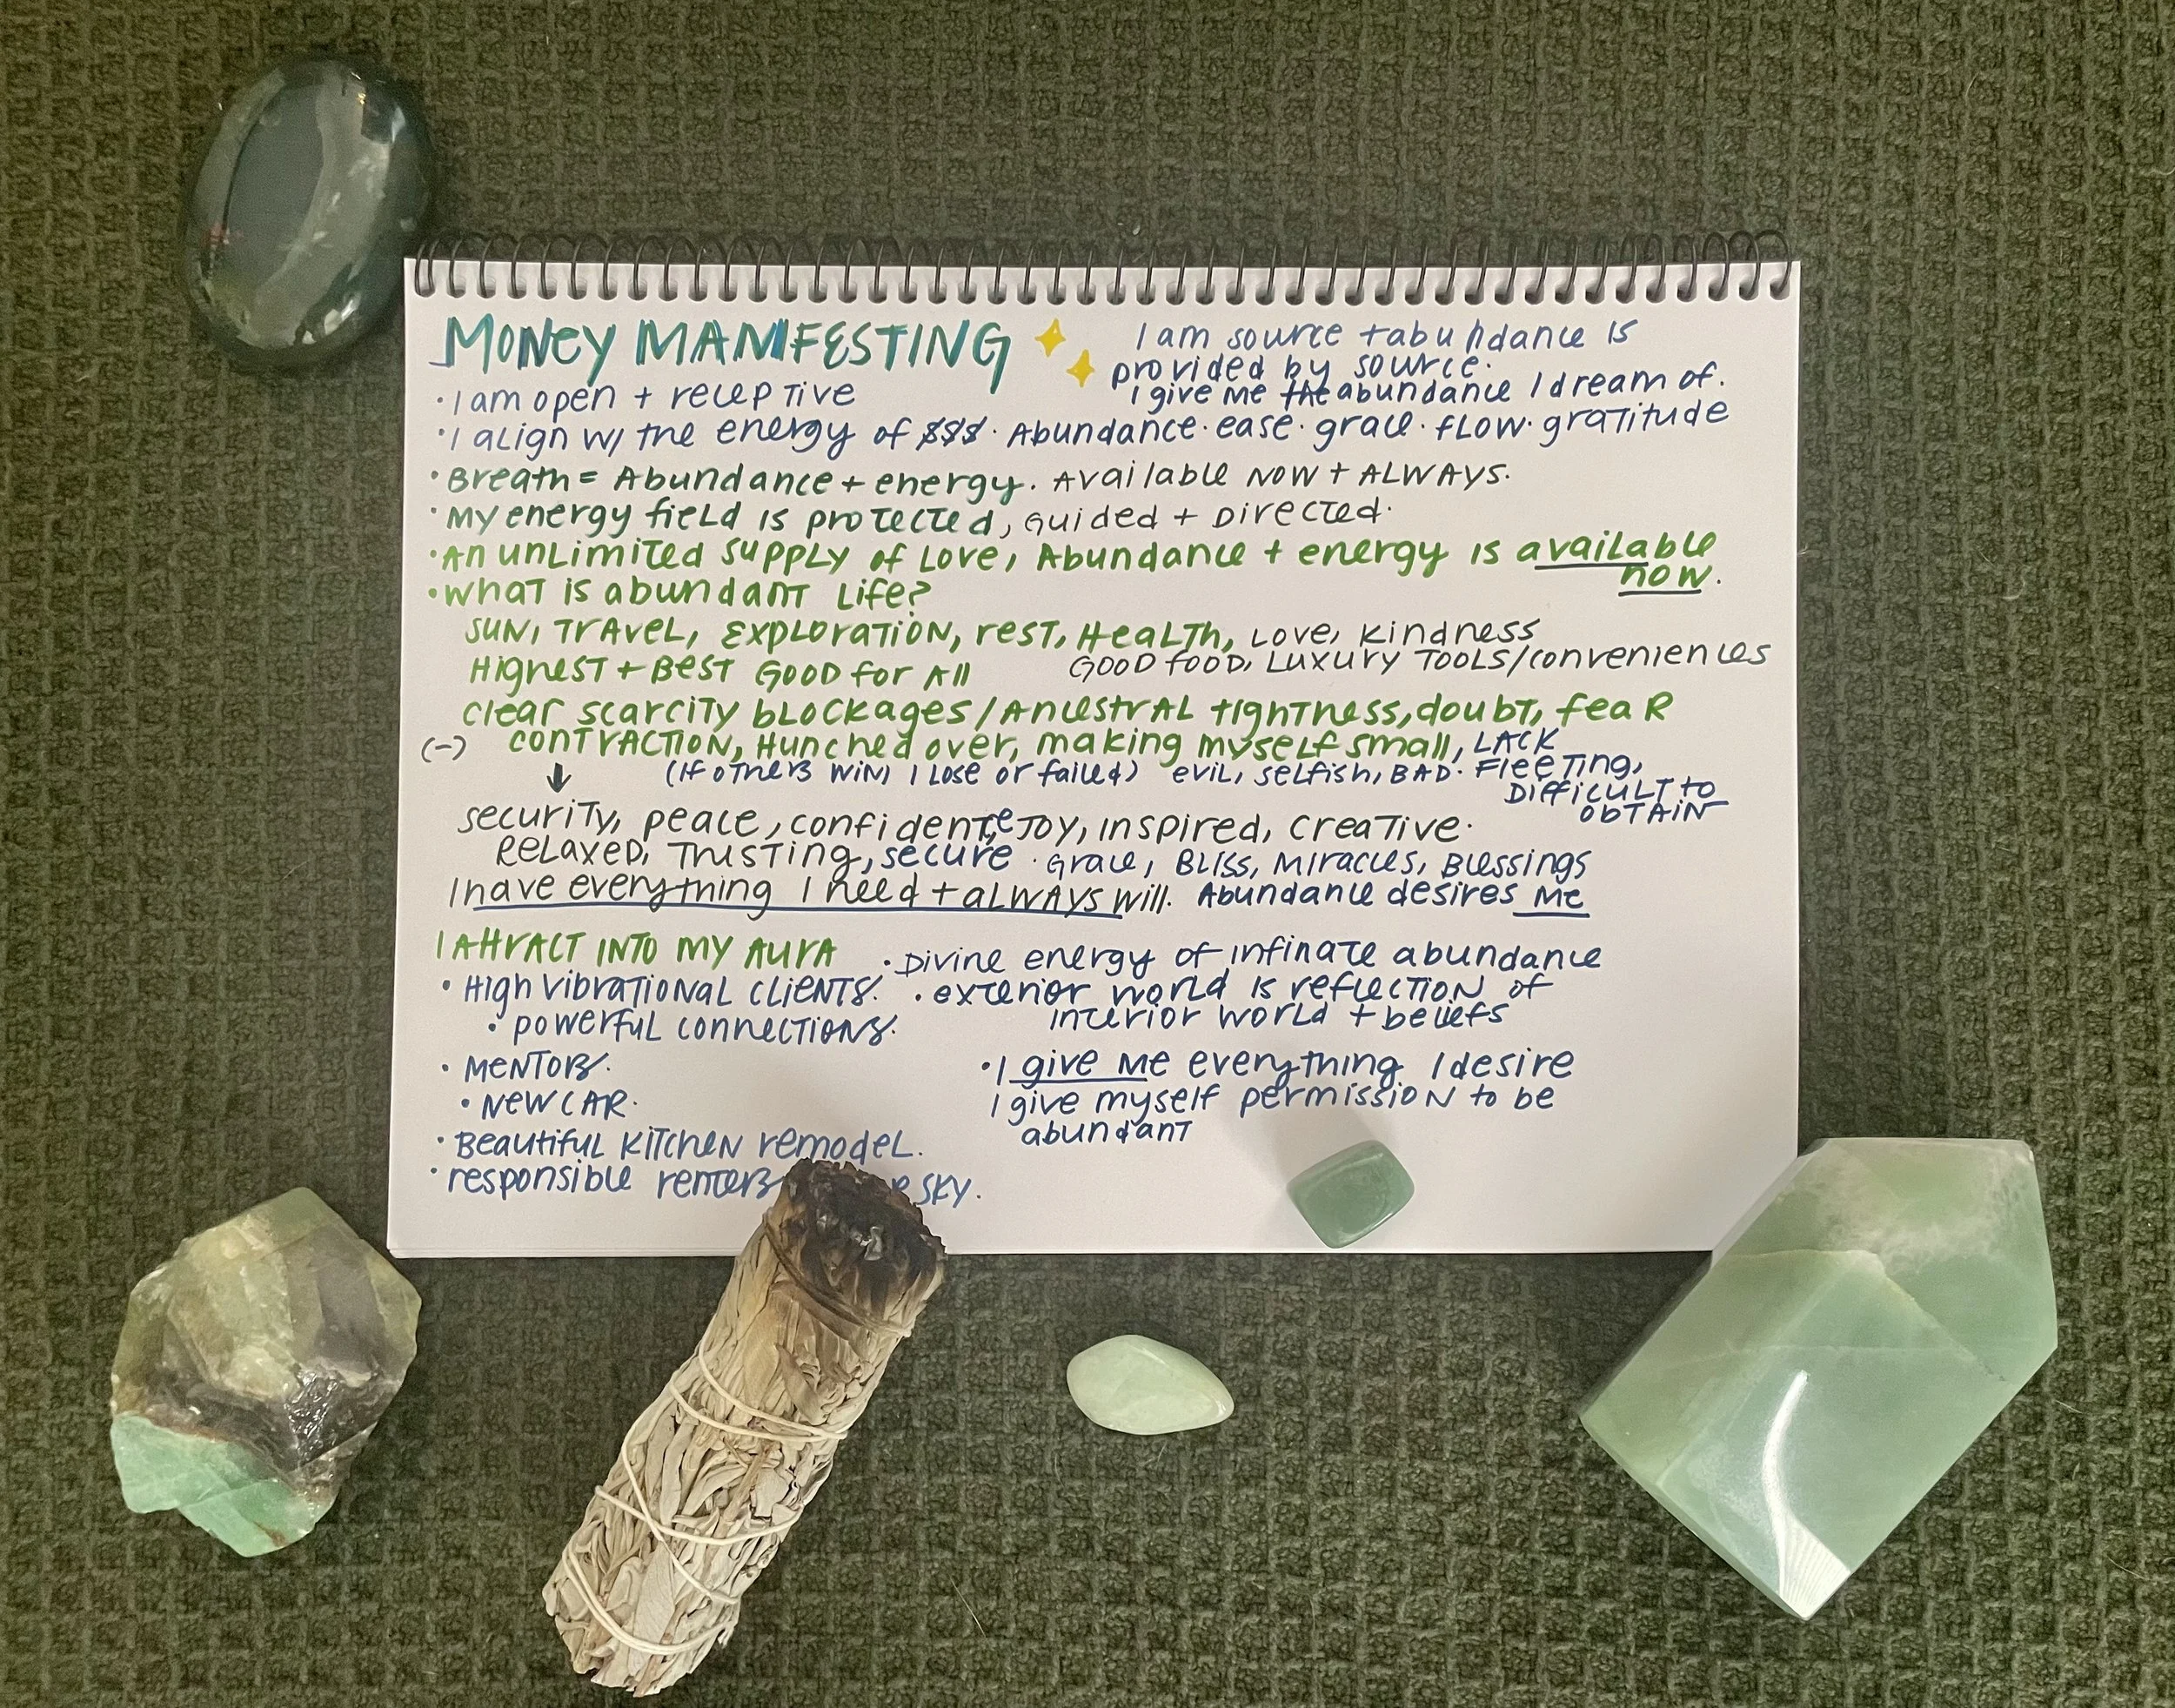 MONEY MANIFESTING
I am source + abundance is
provided by source.
I give me the abundance I dream of.
• I am open + receptive
• I align w/ the energy of $$$. Abundance. ease. grace. flow. gratitude
• Breath = Abundance + energy. Available NOW + ALWAYS.
• My energy field is protected, Guided + Directed.
• An unlimited supply of Love, Abundance + energy is available
now.
• What is abundant Life?
Sun, Travel, Exploration, rest, Health, Love, kindness
Highest + Best Good for All
Good food, Luxury Tools/conveniences
clear scarcity blockages/Ancestral tightness, doubt, fear
(-) contraction, Hunched over, making myself small, LACK
↓ (If others win, I lose or failed) evil, selfish, BAD. Fleeting,
Difficult to
obtain
security, peace, confidence, Joy, inspired, creative.
Relaxed, Trusting, secure. Grace, Bliss, Miracles, Blessings
I have everything I need + always will. Abundance desires me
I Attract into my Aura
• High vibrational clients.
• powerful connections.
• Mentors.
• New car.
• Beautiful kitchen remodel.
• responsible renters sky.
• Divine energy of infinate abundance
• exterior world is reflection of
interior world + beliefs
• I give me everything I desire
I give myself permission to be
abundant